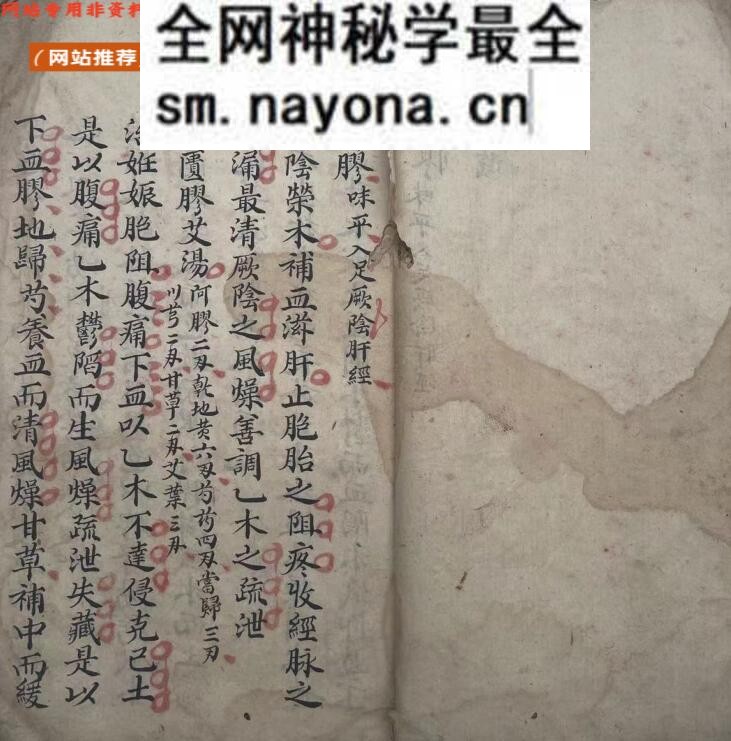 网站专用非资料
网站推荐
全网神秘学最全
sm.nayona.cn
膠味平入足厥陰肝經
陰榮木補血滋肝止胞胎之阻疼收經脉之
漏最清厥陰之風燥善調乙木之疏泄
匱膠艾湯阿膠二刄乾地黄六刄芍药四刄當歸三刄
川芎二刄甘草二刄艾葉三刄
治妊娠胞阻腹痛下血以乙木不達侵克己土
是以腹痛乙木鬱陷而生風燥疏泄失藏是以
下血膠地歸芍養血而清風燥甘草補中而緩